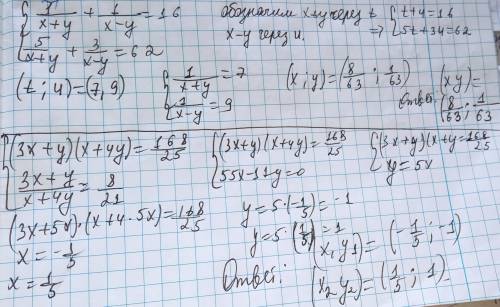 { 1/(x+y) + 1/(x-y) = 16
5/(x+y) + 3/(x-y) = 62
обозначим x+y через t
x-y через и. ⇒ { t+y=16
5t+3u=62
(t; u) = (7, 9)
{ 1/(x+y) = 7
1/(x-y) = 9
(x; y) = (8/63; 1/63)
Ответ: (xy) = (8/63; 1/63)
{ (3x+y)(x+4y) = 168/25
(3x+y)/(x+4y) = 8/21
{ (3x+y)(x+4y) = 168/25
55x-11y=0
{ (3x+y)(x+y = 168/25
y = 5x
(3x+5x)·(x+4·5x) = 168/25
x = -1/5
x = 1/5
y = 5·(-1/5) = -1
y = 5·(1/5) = 1
x₁ y₁) = (-1/5; -1)
Ответ: (x₂ y₂) = (1/5; 1)